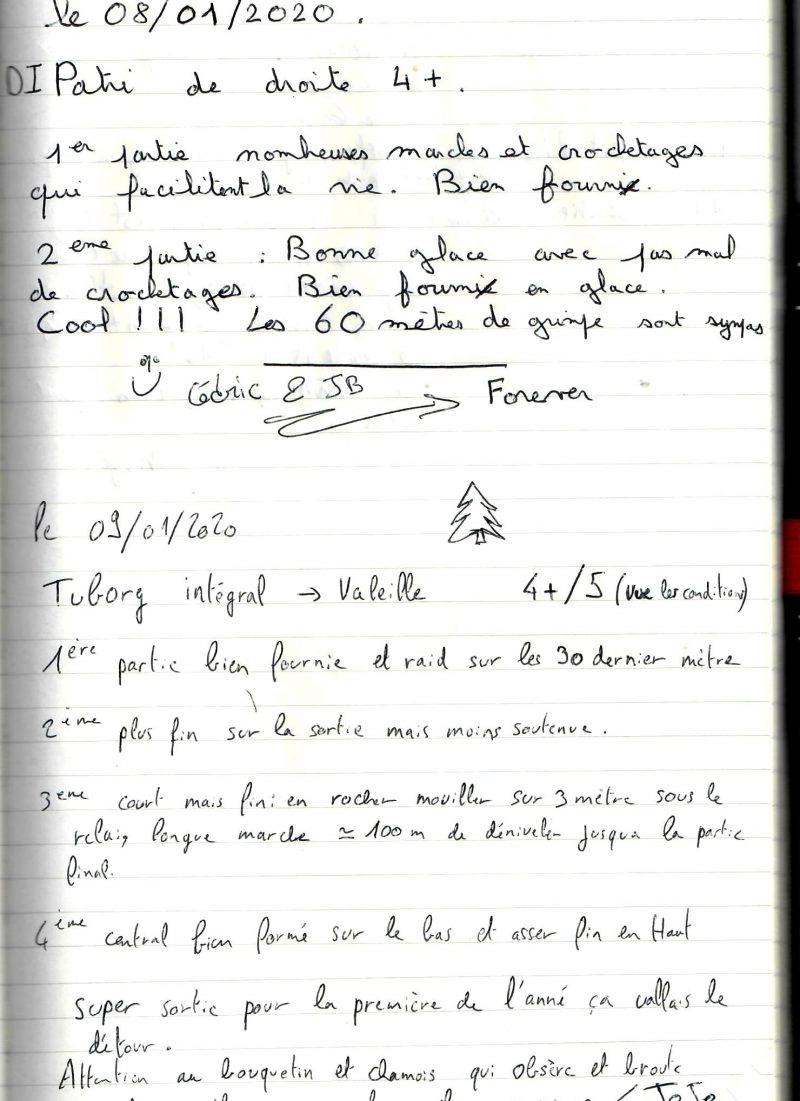 le 08/01/2020.
Patri de droite 4+.
1er partie nombeuses marches et crochetages
qui facilitent la vie. Bien fourni.
2eme partie : Bonne glace avec pas mal
de crochetages. Bien fourni en glace.
Cool !!! Les 60 mètres de grimpe sont sympas
Cédric & JB → Forever
le 09/01/2020
Tuborg intégral → Valeille 4+/5 (vue les conditions)
1ère partie bien fournie et raid sur les 30 dernier mètre
2ième plus fin sur la sortie mais moins soutenue.
3eme court mais fini en rocher mouiller sur 3 mètre sous le
relai, longue marche ≃ 100 m de déniveler jusqua la partie
final.
4ième central bien formé sur le bas et asser fin en Haut
Super sortie pour la première de l'anné ça vallais le
détour.
Attention au bouquetin et chamois qui obsère et broute
JoJo